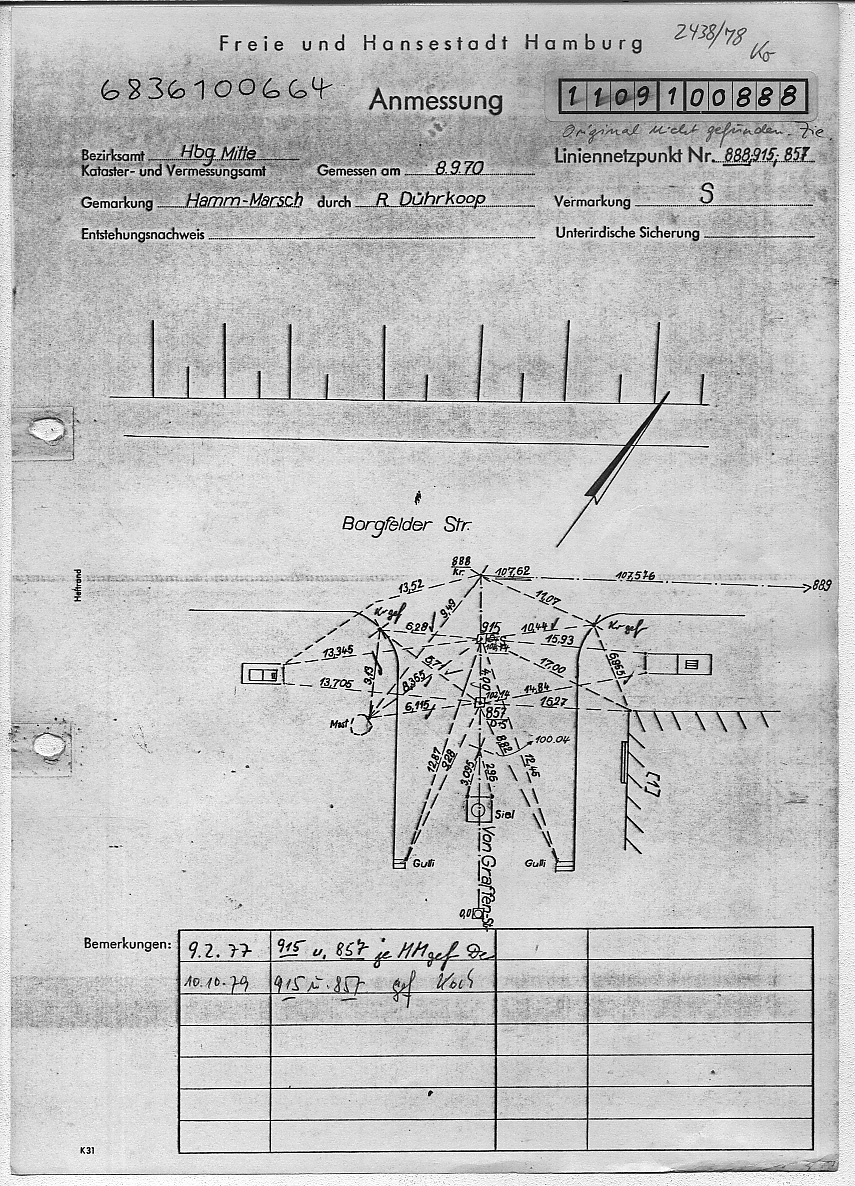 Freie und Hansestadt Hamburg
2438/78
Ko
6836100664
Anmessung
1109100888
Original nicht gefunden.
Bezirksamt Hbg Mitte
Kataster- und Vermessungsamt
Gemessen am 8.9.70
Liniennetzpunkt Nr. 888,915; 857
Gemarkung Hamm-Marsch
durch R. Dührkoop
Vermarkung S
Entstehungsnachweis
Unterirdische Sicherung
Borgfelder Str.
Heftrand
888
Kr.
107,62
107,576
889
13,52
9,49
11,07
Kr gef
6,28
915
10,44
15,93
Kr gef
13,345
5,71
17,00
6,965
13,705
9,13
8,365
4,00
102,14
14,84
6,115
857
15,27
Mast
8,82
100.04
12,87
9,28
12,45
3,095
2,95
[1]
Siel
Von Graffen-Str.
Gulli
Gulli
0,0
Bemerkungen:
9.2.77 915 u. 857 je MM gef De
10.10.79 915 u. 857 gef Koch
K31